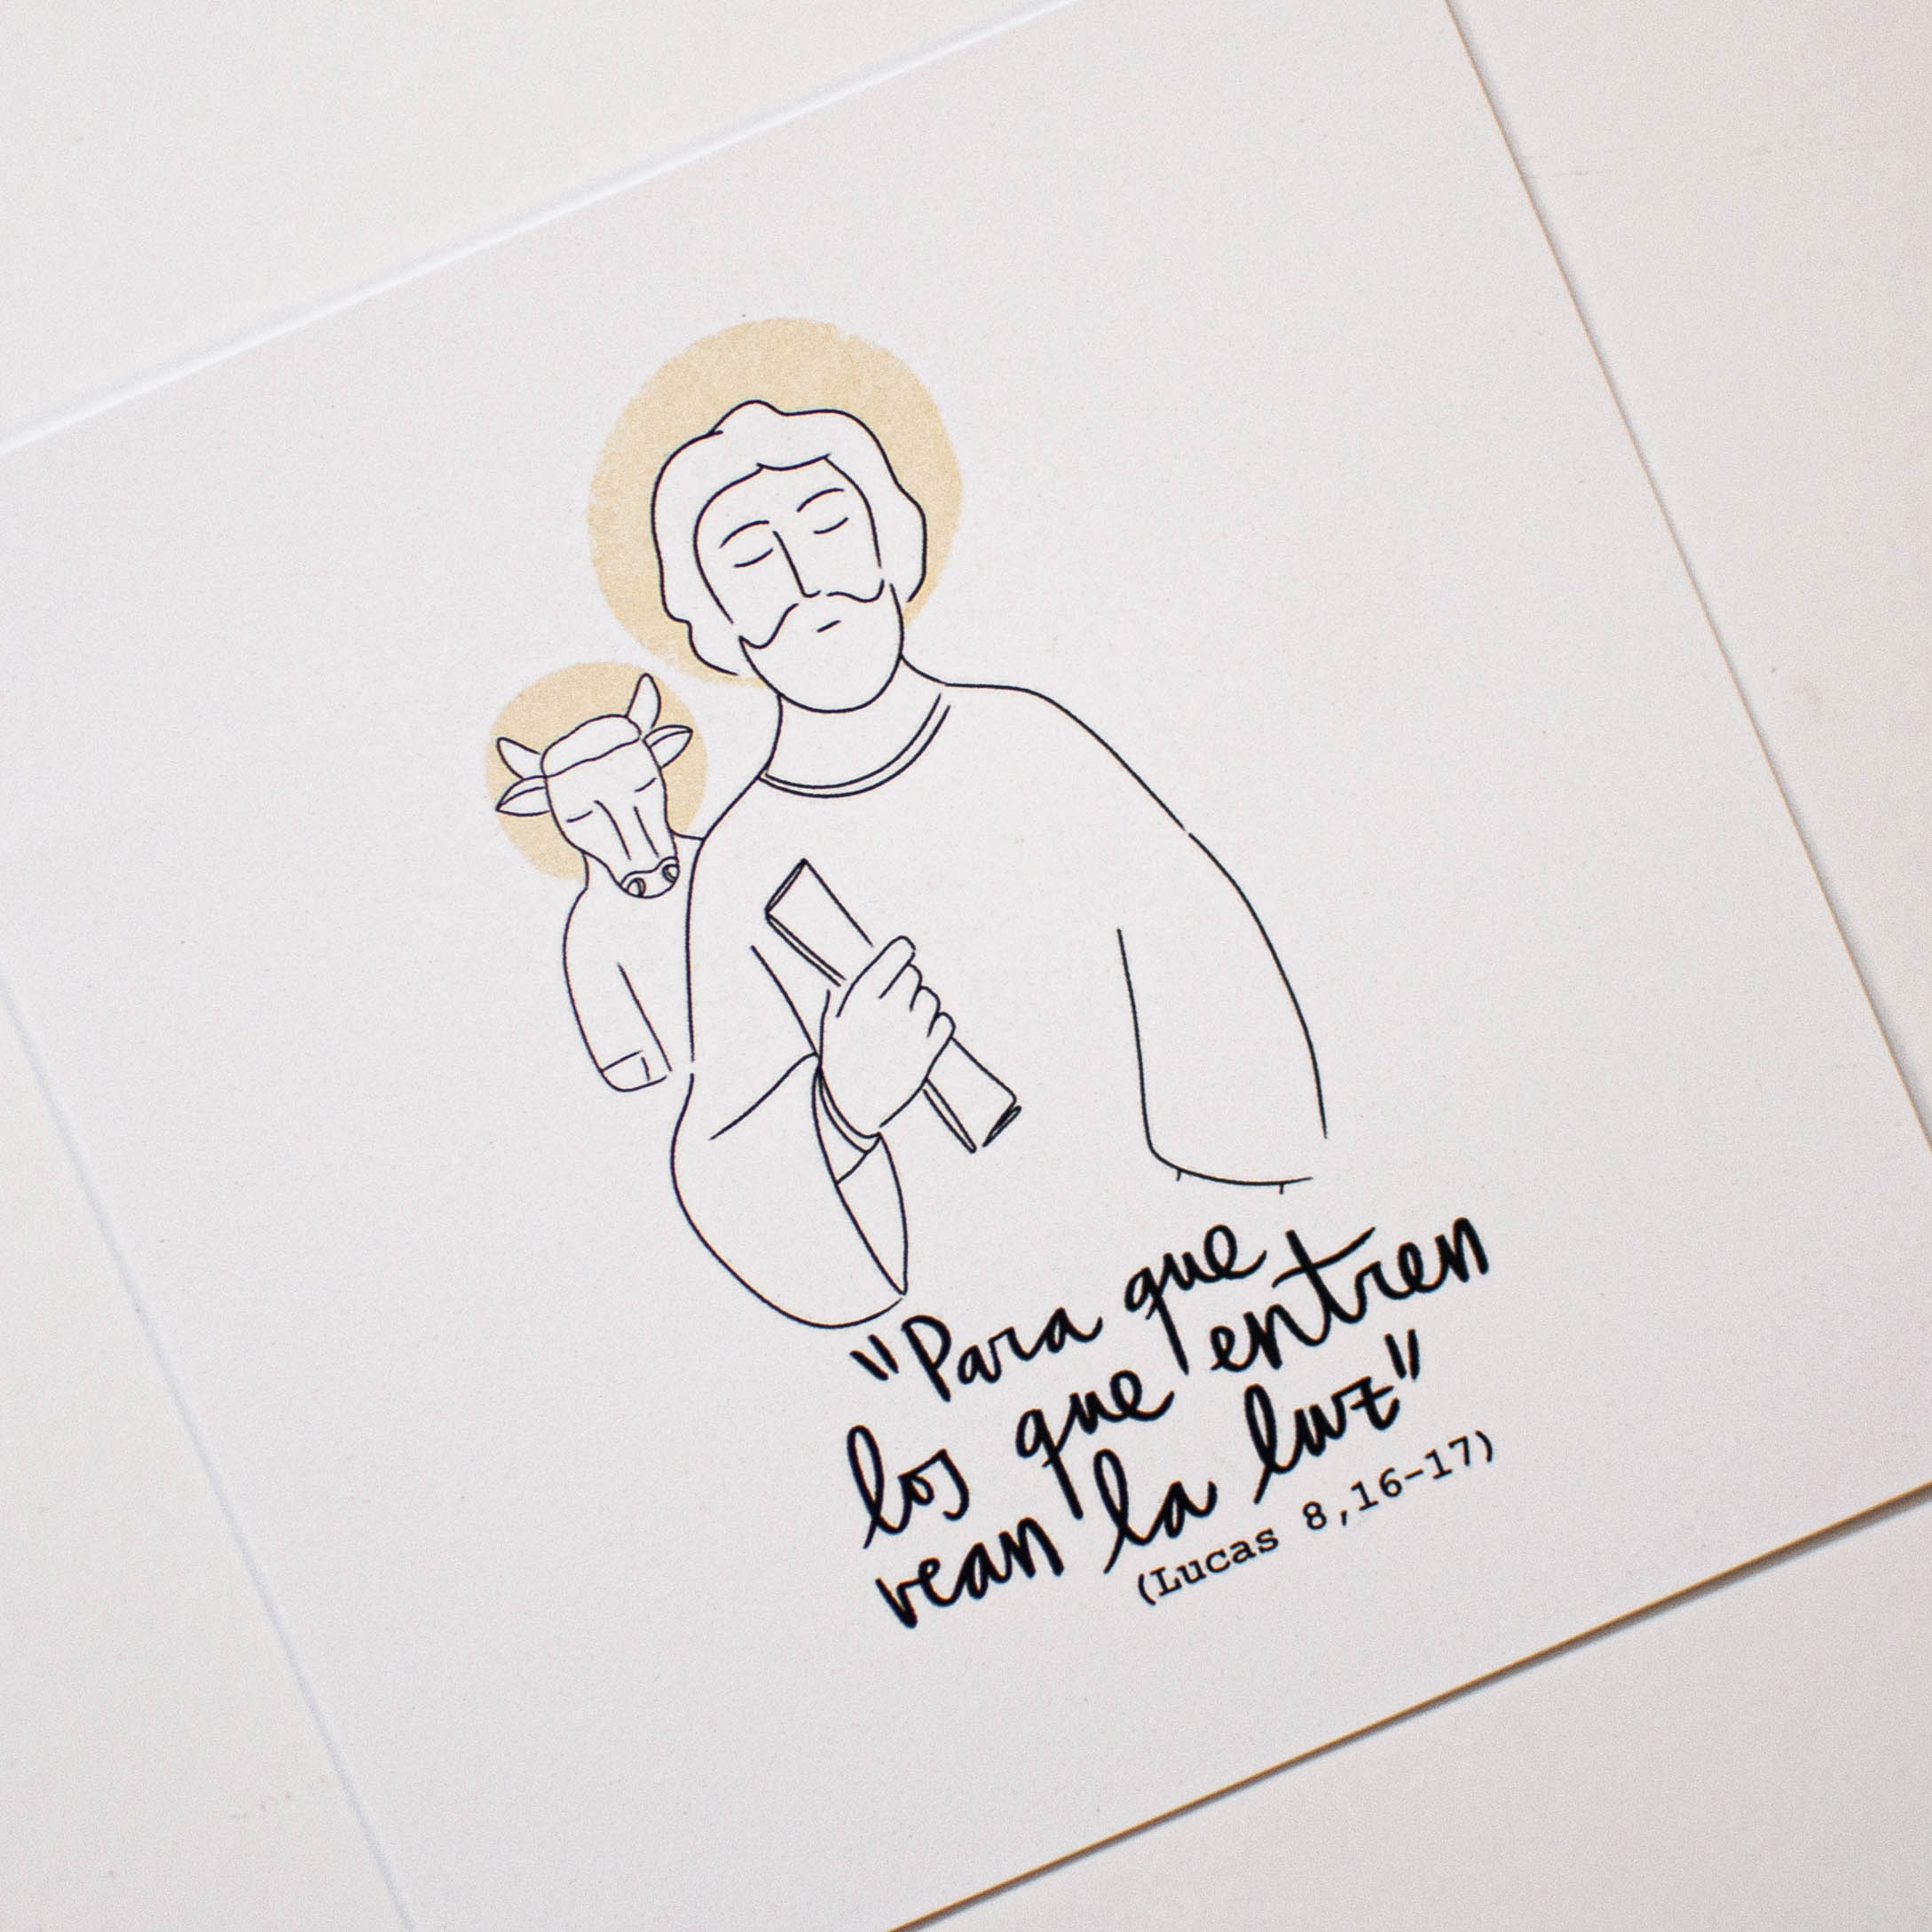 "Para que
los que entren
vean la luz"
(Lucas 8,16-17)